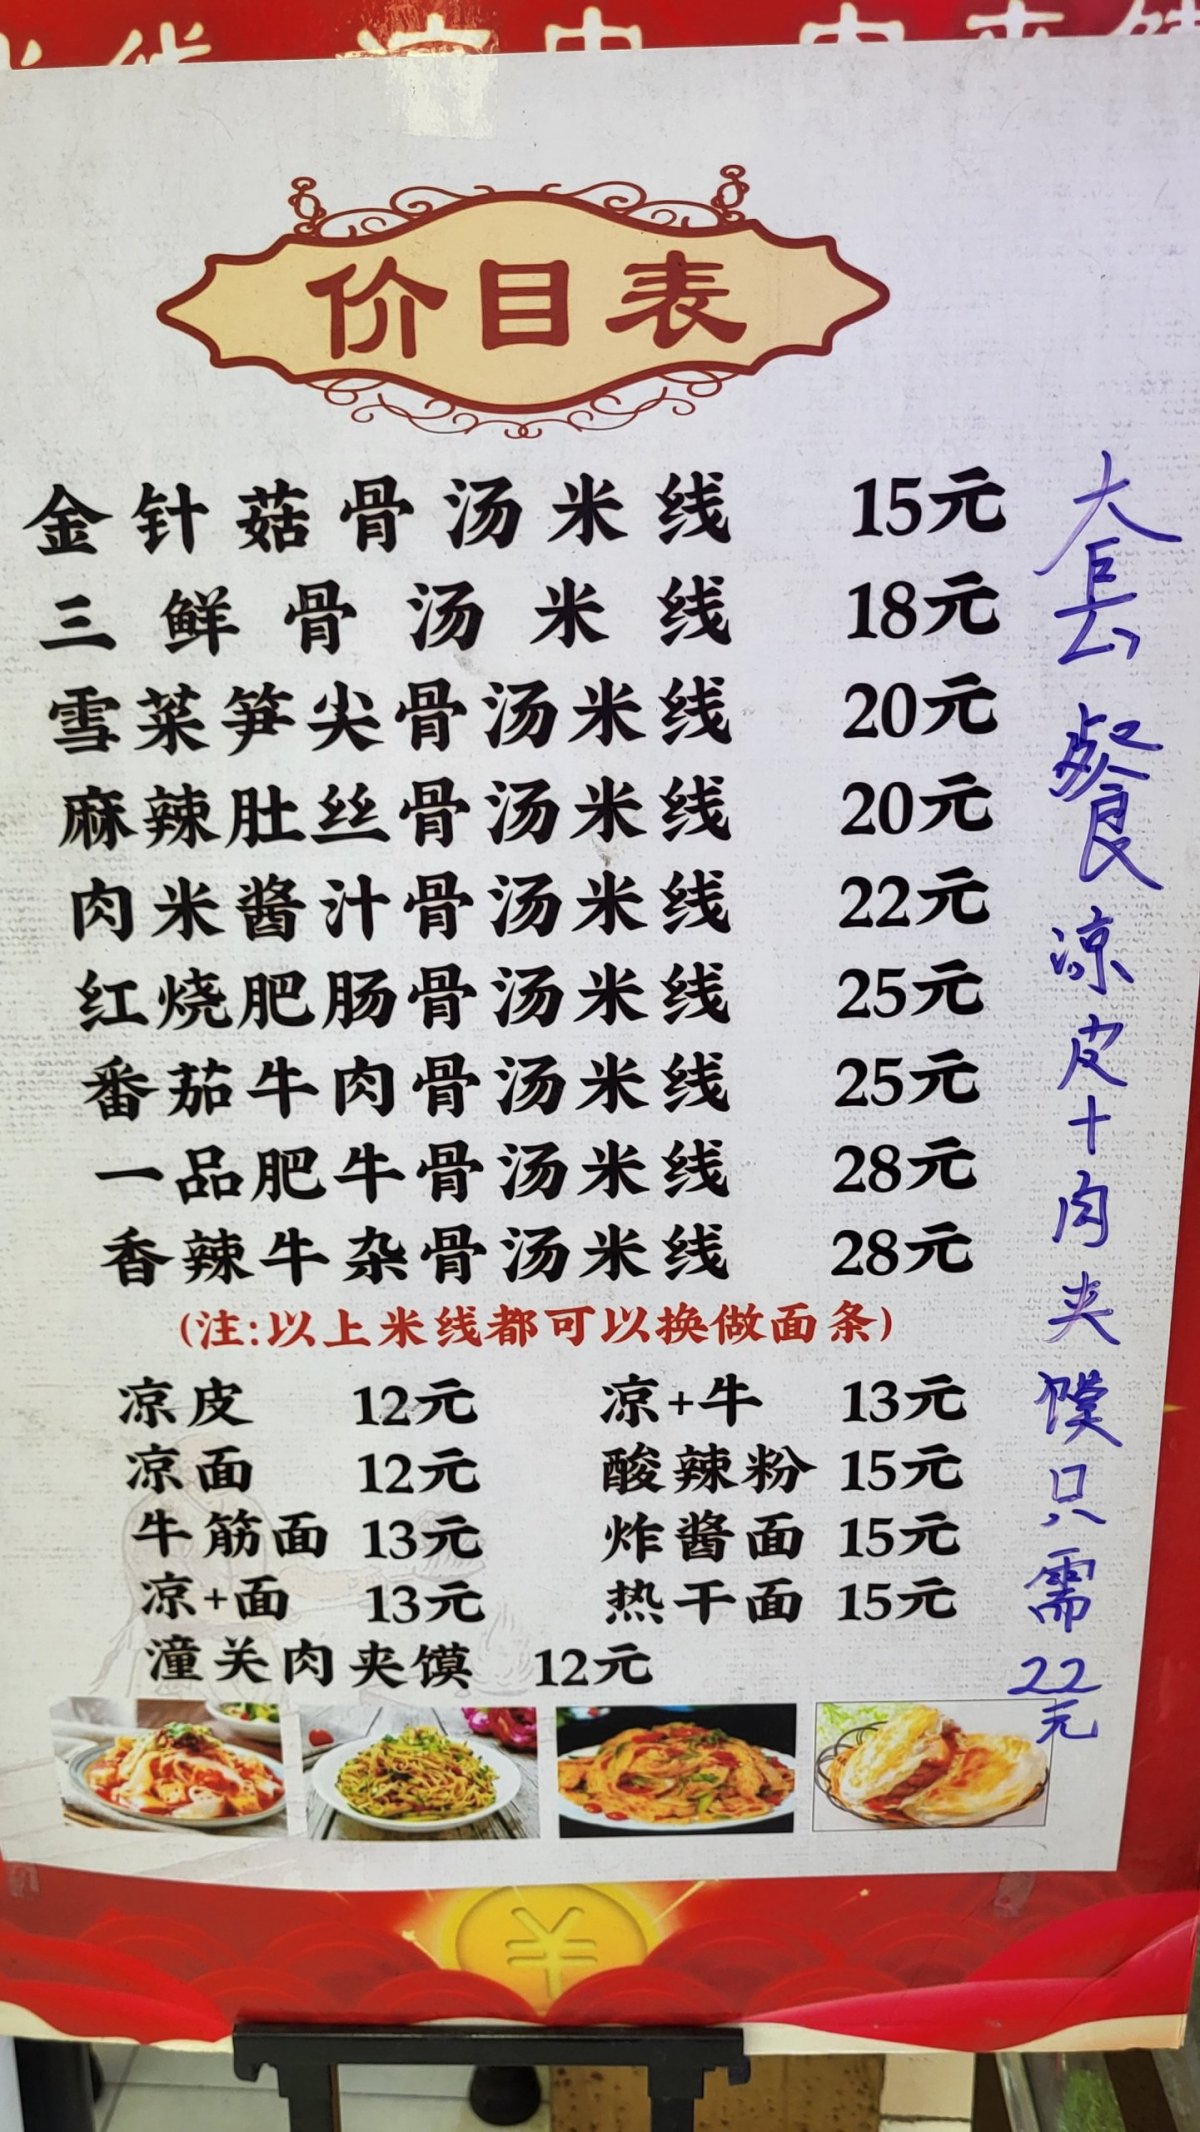 价目表
金针菇骨汤米线 15元
三鲜骨汤米线 18元
雪菜笋尖骨汤米线 20元
麻辣肚丝骨汤米线 20元
肉米酱汁骨汤米线 22元
红烧肥肠骨汤米线 25元
番茄牛肉骨汤米线 25元
一品肥牛骨汤米线 28元
香辣牛杂骨汤米线 28元
(注:以上米线都可以换做面条)
凉皮 12元 凉+牛 13元
凉面 12元 酸辣粉 15元
牛筋面 13元 炸酱面 15元
凉+面 13元 热干面 15元
潼关肉夹馍 12元
套餐凉皮+肉夹馍只需22元
¥